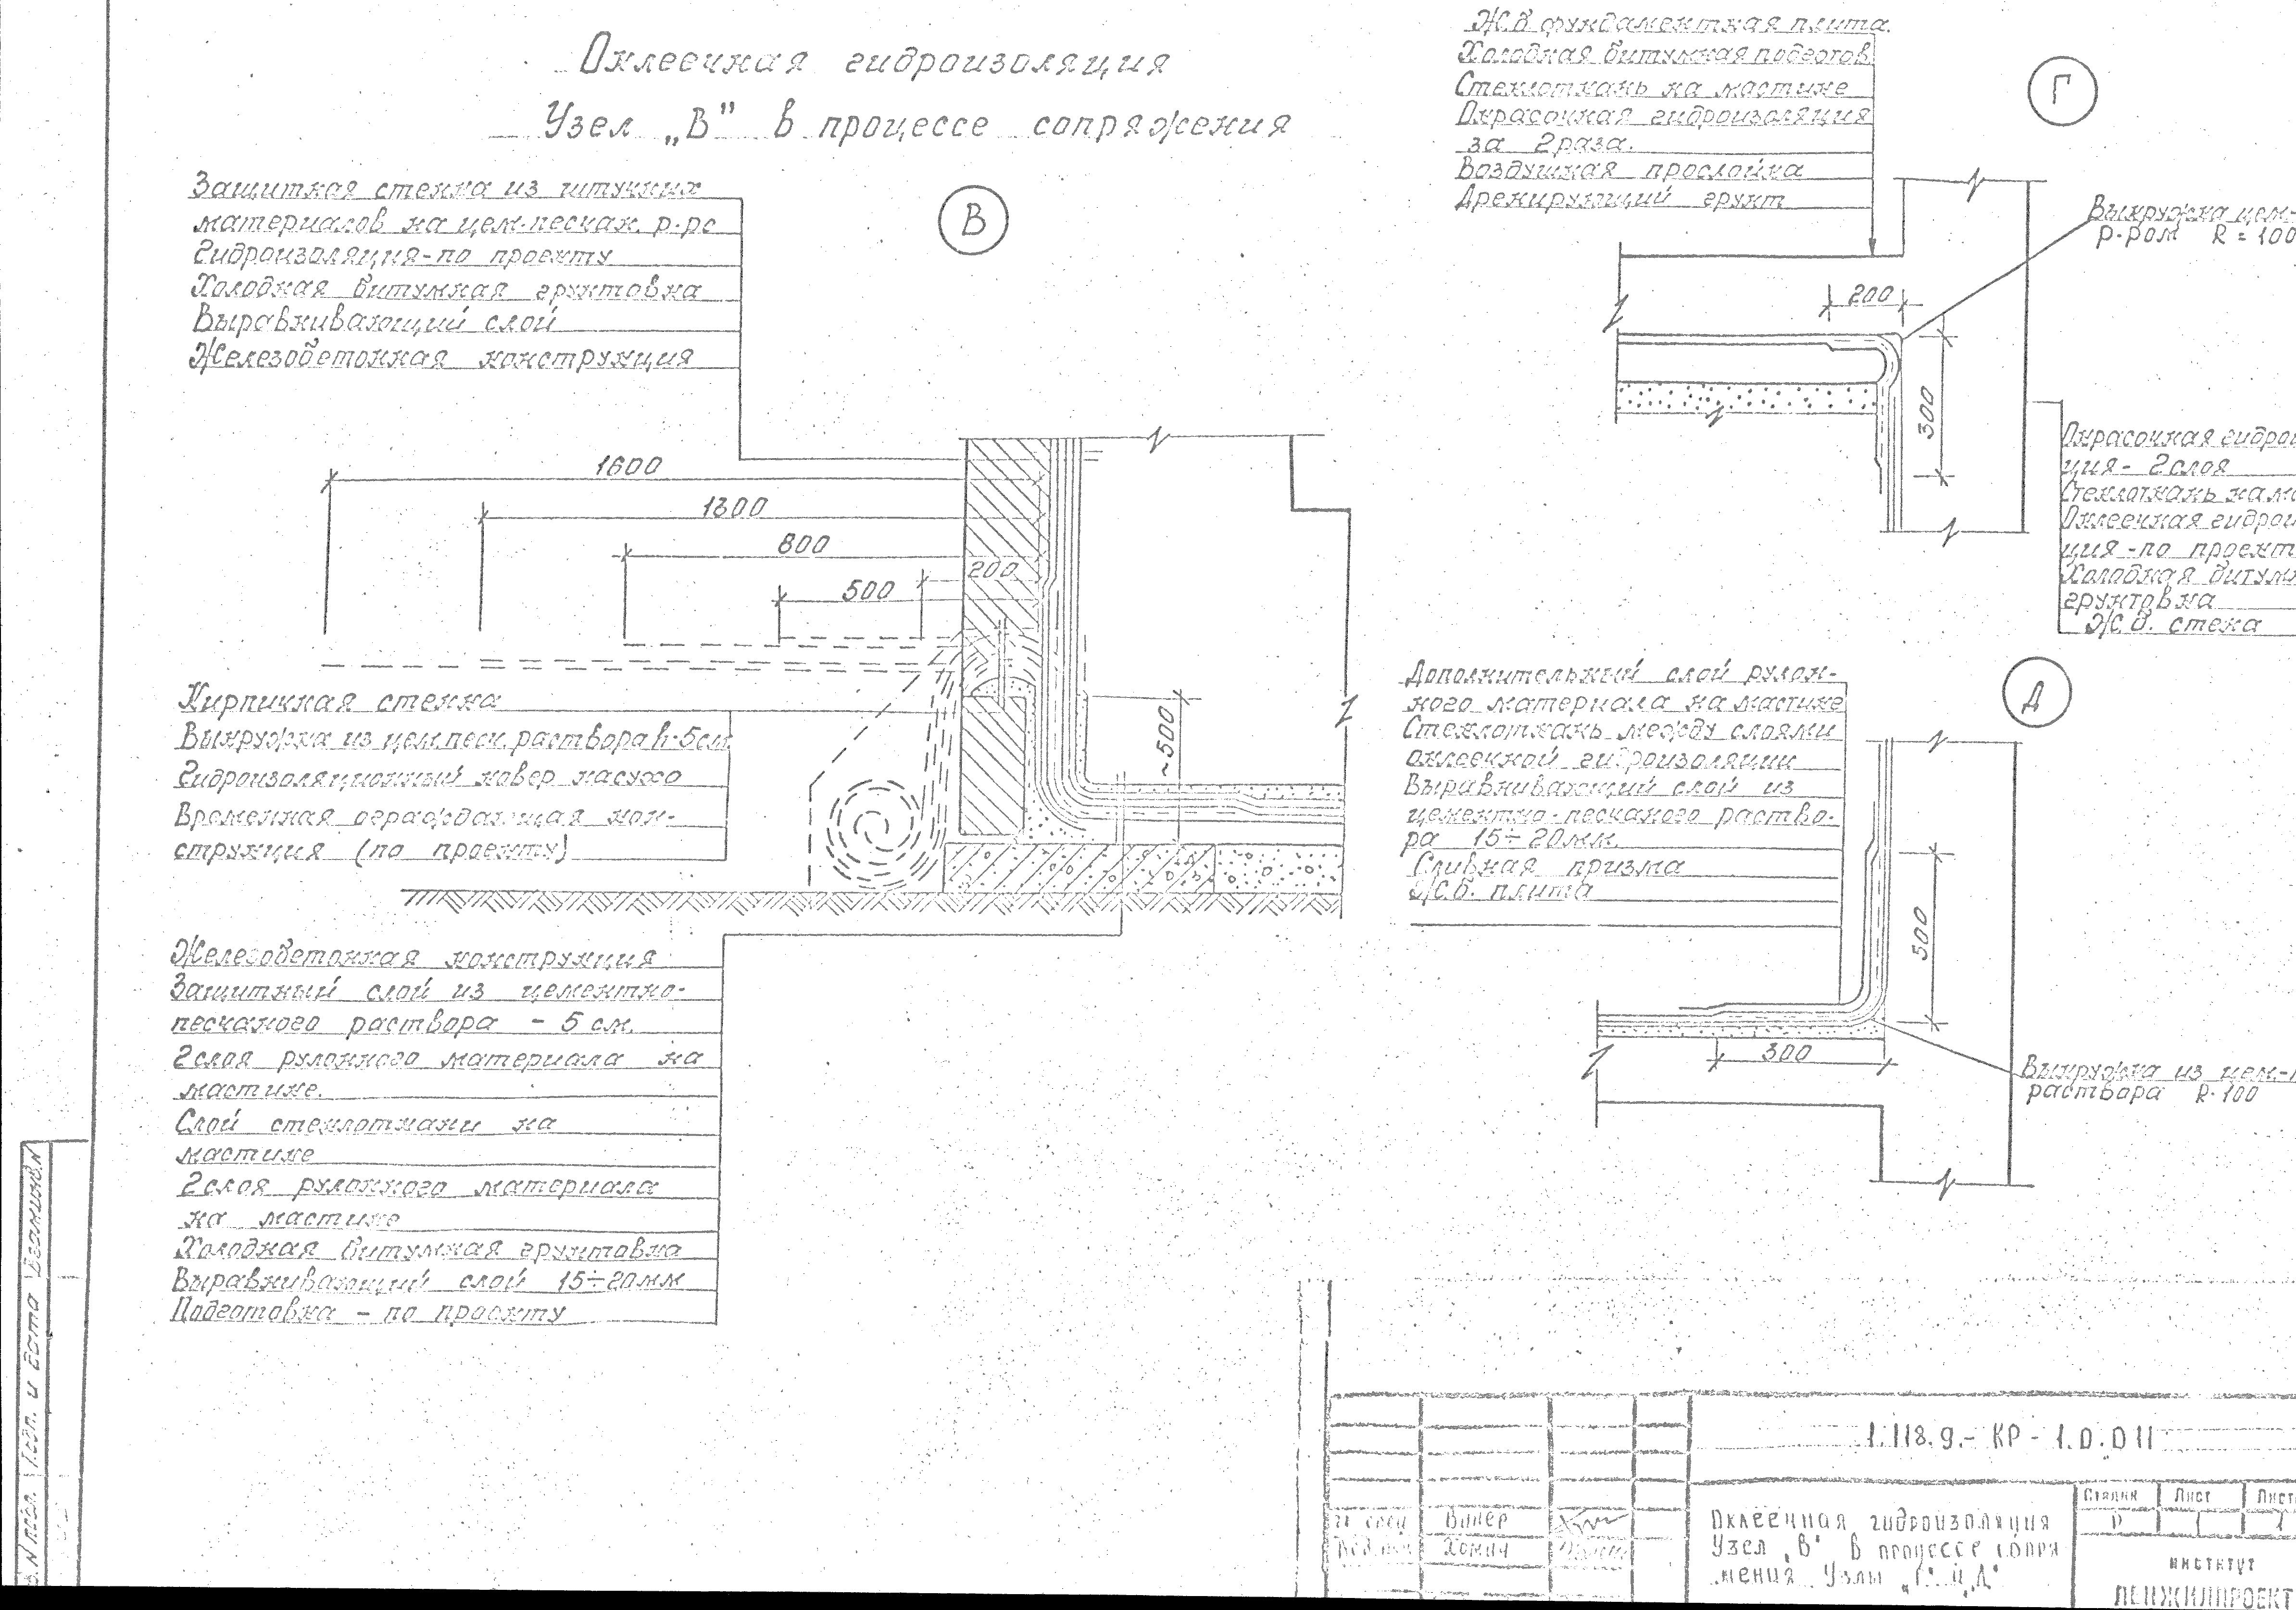 Оклеечная гидроизоляция
Узел „В" в процессе сопряжения
В
Защитная стенка из штучных
материалов на цем.-песчан. р-ре
Гидроизоляция-по проекту
Холодная битумная грунтовка
Выравнивающий слой
Железобетонная конструкция
1600
1300
800
200
500
Кирпичная стенка
Выкружка из цем.песч. раствора h-5см
Гидроизоляционный ковер насухо
Временная ограждающая кон-
струкция (по проекту)
~500
Железобетонная конструкция
Защитный слой из цементно-
песчаного раствора - 5 см.
2слоя рулонного материала на
мастике.
Слой стеклоткани на
мастике
2слоя рулонного материала
на мастике
Холодная битумная грунтовка
Выравнивающий слой 15÷20мм
Подготовка - по проекту
Г
Ж.б фундаментная плита.
Холодная битумная подготов.
Стеклоткань на мастике
Окрасочная гидроизоляция
за 2раза.
Воздушная прослойка
Дренирующий грунт
Выкружка цем-
р-ром R = 100
200
300
Окрасочная гидрои
ция- 2слоя
Стеклоткань на ма
Оклеечная гидрои
ция -по проект
Холодная битумн
грунтовка
Ж.б. стена
Д
Дополнительный слой рулон-
ного материала на мастике
Стеклоткань между слоями
оклеечной гидроизоляции
Выравнивающий слой из
цементно-песчаного раство-
ра 15÷20мм.
Сливная призма
Ж.б. плита
500
300
Выкружка из цем-
раствора R-100
1.118.9.- КР - 1.0.011
Стадия Лист Лист
Р 1 1
гл. спец Винер
Хомич
Оклеечная гидроизоляция
Узел „В" в процессе сопря
жения Узлы „Г" и „Д"
институт
ЛЕНЖИЛПРОЕКТ
Подп. и дата Взам.инв.N